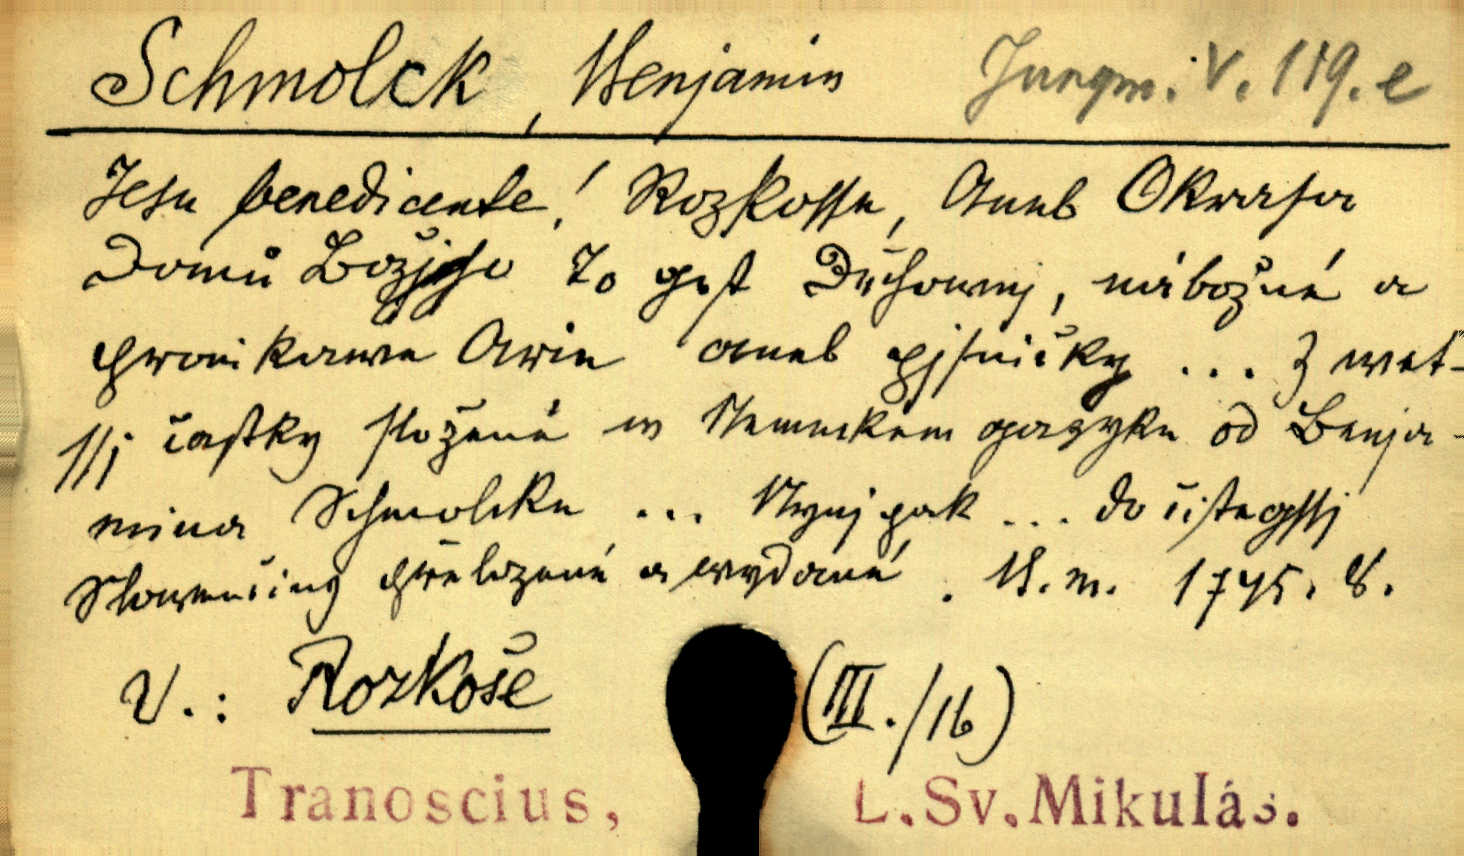 Schmolck, Benjamin Jungm. V. 119. e
Jesu benedicente! Rozkosse, Aneb Okrasa
Domů Božjho To gest Duchownj, nábožné a
pronikawe Arie aneb pjsničky ... Z wet-
ssj častky složené w Nemeckém gazyku od Benja-
mina Schmolcke ... Nynj pak ... do čistegssj
Slowenčiny přeložené a wydané. B. m. 1745. 8.
V.: Rozkoše (III./16)
Tranoscius, L.Sv.Mikuláš.